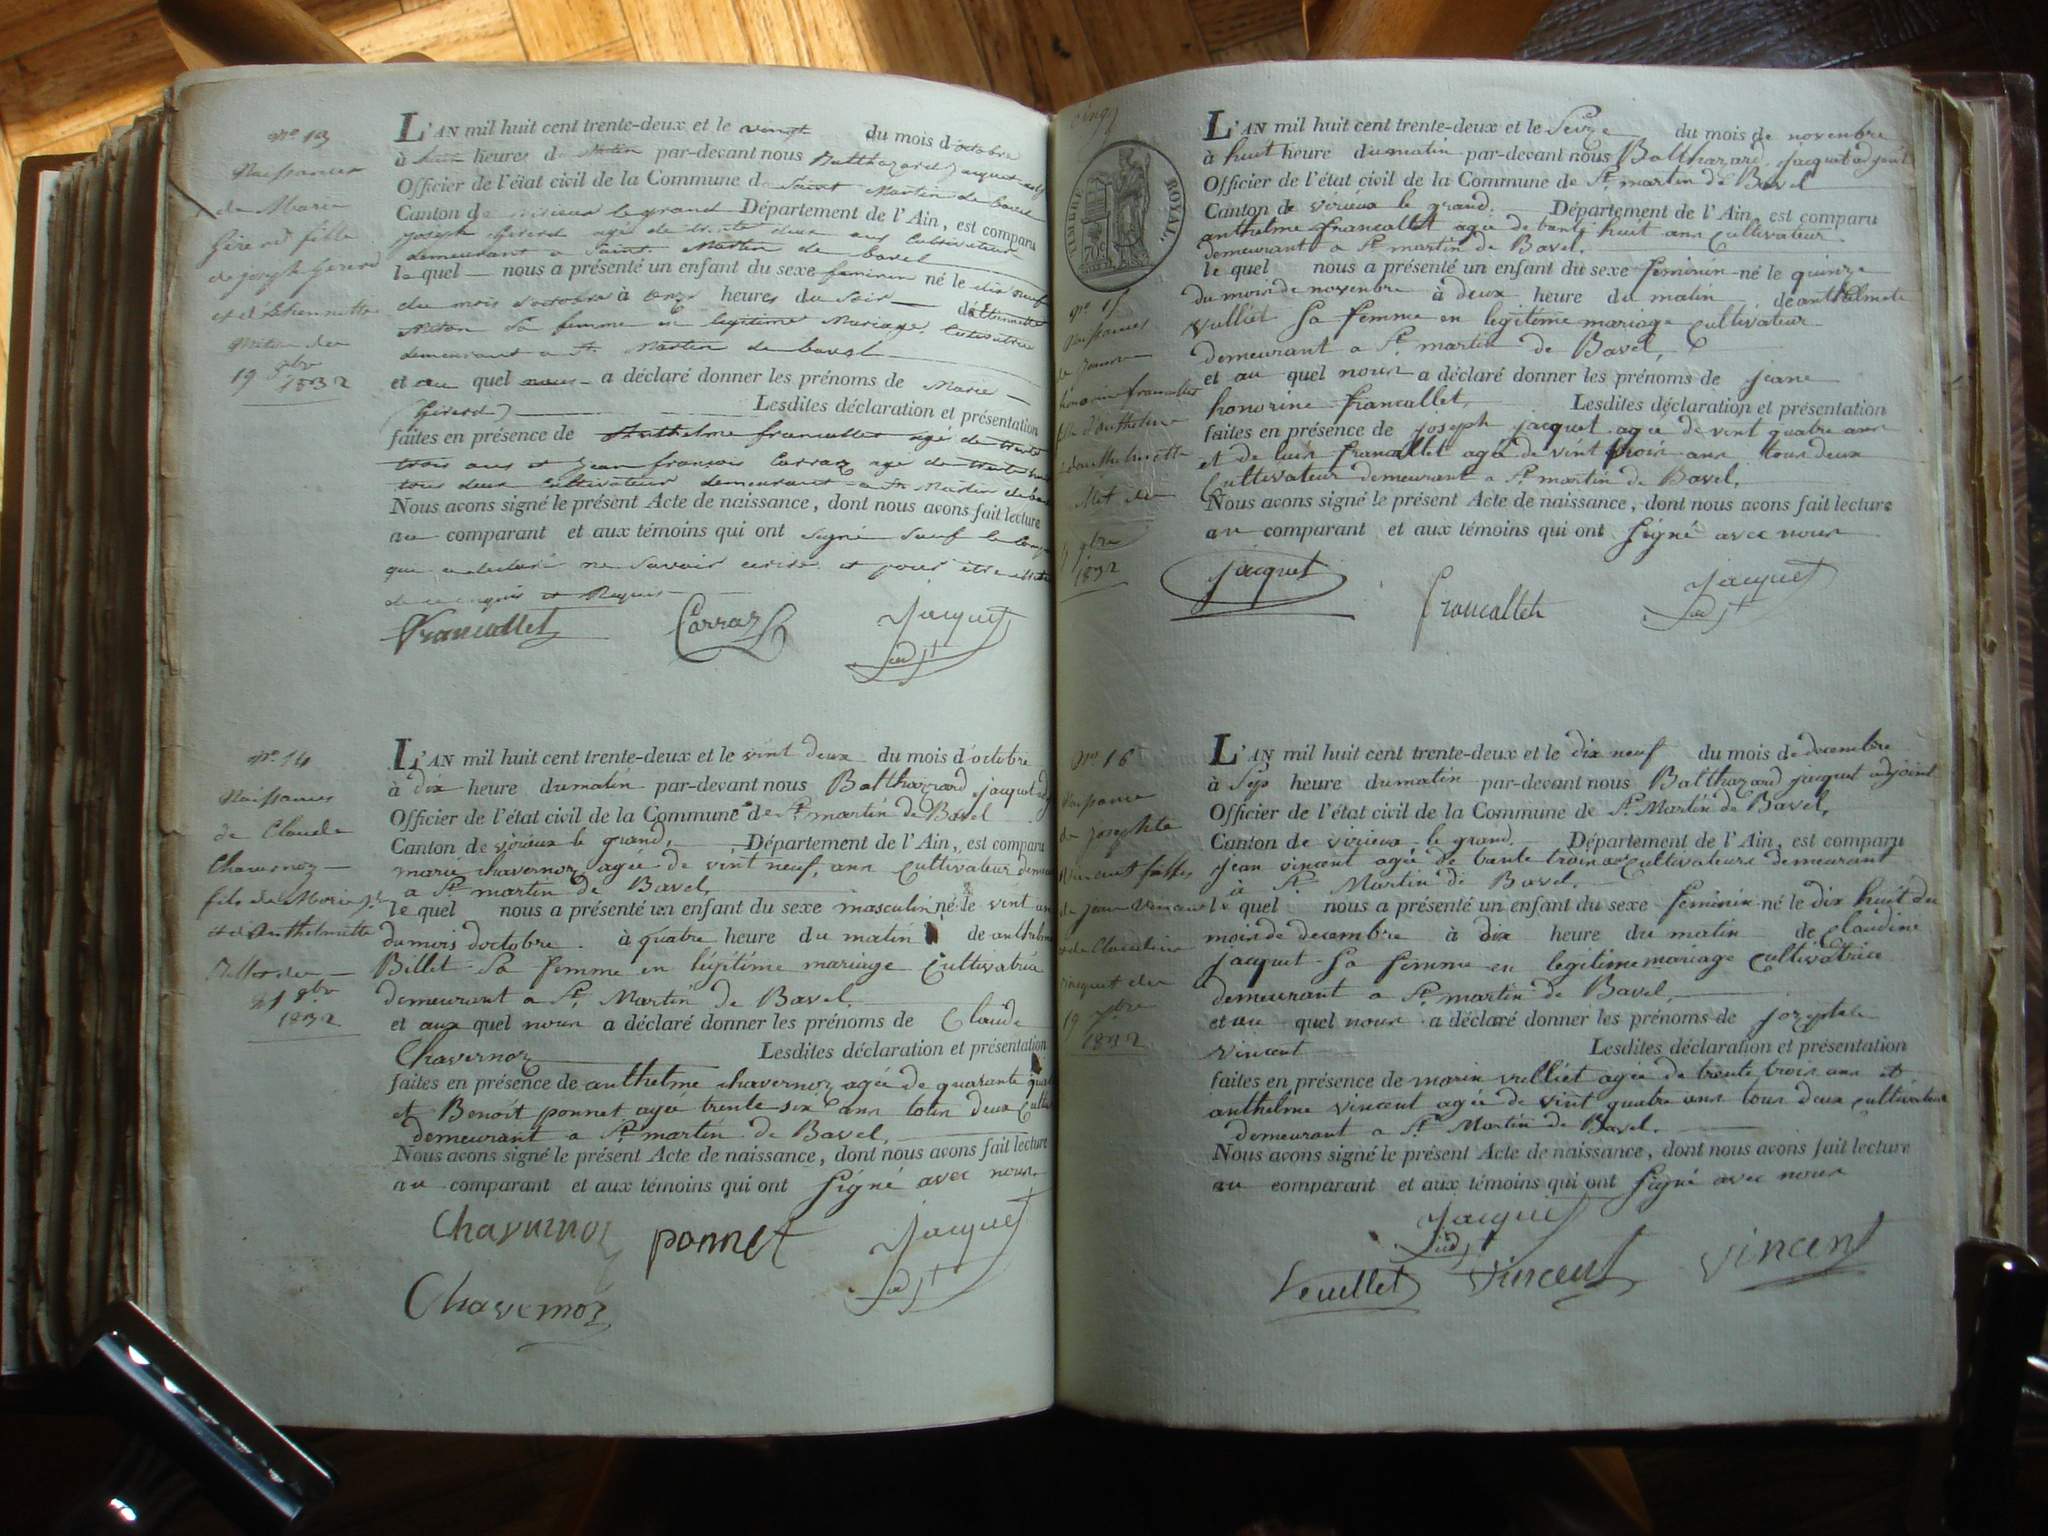 nº 13
Naissances
de Marie
Girerd fille
de joseph Girerd
et d'Etiennette
Miton du
19 8bre
1832
L'AN mil huit cent trente-deux et le vingt du mois d'octobre
à heures d matin par-devant nous Balthazard Jacquet
Officier de l'état civil de la Commune de Saint Martin de bavel
Canton de virieux le grand Département de l'Ain, est comparu
joseph Girerd agé de trente deux ans Cultivateur
demeurant a Saint Martin de bavel
lequel nous a présenté un enfant du sexe feminin né le dix neuf
du mois d'octobre à onze heures du Soir d'Etiennette
Miton Sa femme en legitime Mariage,
demeurant a St. Martin de bavel
et au quel nous a déclaré donner les prénoms de Marie
Girerd Lesdites déclaration et présentation
faites en présence de Anthelme francallet agé de trente
trois ans et Jean françois Carraz agé de trente
tous deux Cultivateur demeurant a St Martin de
Nous avons signé le présent Acte de naissance, dont nous avons fait lecture
au comparant et aux témoins qui ont signé Sauf le
que a declaré ne Savoir ecrire et pour être
de ce enquis et Requis
Francallet Carraz Jacquet
adjt
nº 14
Naissances
de Claude
Chavernoz
fils de Marie
et d'Anthelmette
Billet du
21 8bre
1832
L'AN mil huit cent trente-deux et le vint deux du mois d'octobre
à dix heure du matin par-devant nous Balthazard jacquet
Officier de l'état civil de la Commune de St martin de Bavel
Canton de virieux le grand, Département de l'Ain, est comparu
marie chavernoz agée de vint neuf, ans Cultivateur
a St martin de Bavel,
lequel nous a présenté un enfant du sexe masculin né le vint un
du mois doctobre à quatre heure du matin de
Billet Sa femme en légitime mariage Cultivatrice
demeurant a St Martin de Bavel.
et aux quel nous a déclaré donner les prénoms de Claude
Chavernoz Lesdites déclaration et présentation
faites en présence de anthelme chavernoz agée de quarante
et Benoit ponnet agée trente six ans tous deux
demeurant a St martin de Bavel,
Nous avons signé le présent Acte de naissance, dont nous avons fait lecture
au comparant et aux témoins qui ont signé avec nous
Chavernoz ponnet Jacquet
adjt
Chavernoz
TIMBRE ROYAL
nº 15
Naissances
de Jeanne
honorine francallet
fille d'Anthelme
9bre
1832
L'AN mil huit cent trente-deux et le Seize du mois de novembre
à huit heure du matin par-devant nous Balthazard jacquet adjoint
Officier de l'état civil de la Commune de St martin de Bavel
Canton de virieux le grand. Département de l'Ain, est comparu
anthelme francallet agée de trante huit ans Cultivateur
demeurant a St martin de Bavel.
lequel nous a présenté un enfant du sexe feminin né le quinze
du mois de novembre à deux heure du matin de anthelmete
vulliet Sa femme en legitime mariage Cultivateur
demeurant a St martin de Bavel,
et au quel nous a déclaré donner les prénoms de jeane
honorine francallet, Lesdites déclaration et présentation
faites en présence de joseph jacquet agée de vint quatre ans
et de luis francallet agé de vint trois ans tous deux
Cultivateur demeurant a St martin de Bavel,
Nous avons signé le présent Acte de naissance, dont nous avons fait lecture
au comparant et aux témoins qui ont signé avec nous
jacquet Francallet Jacquet
adjt
Nº 16
Naissance
de josephte
Vincent fille
de jean Vincent
et de Claudine
Jacquet du
19
1832
L'AN mil huit cent trente-deux et le dix neuf du mois de decembre
à Sep heure du matin par-devant nous Balthazard jacquet adjoint
Officier de l'état civil de la Commune de St Martin de Bavel,
Canton de virieux le grand Département de l'Ain, est comparu
jean vincent agée de trente trois ans cultivateur demeurant
a St Martin de Bavel.
le quel nous a présenté un enfant du sexe feminin né le dix huit du
mois de decembre à dix heure du matin de claudine
jacquet Sa femme en legitime mariage Cultivatrice
demeurant a St martin de Bavel,
et au quel nous a déclaré donner les prénoms de josephte
vincent Lesdites déclaration et présentation
faites en présence de marin vulliet agée de trente trois ans et
anthelme vincent agée de vint quatre ans tous deux cultivateur
demeurant a St Martin de Bavel.
Nous avons signé le présent Acte de naissance, dont nous avons fait lecture
au comparant et aux témoins qui ont signé avec nous
Jacquet
adjt
Veuillet Vincent Vincent